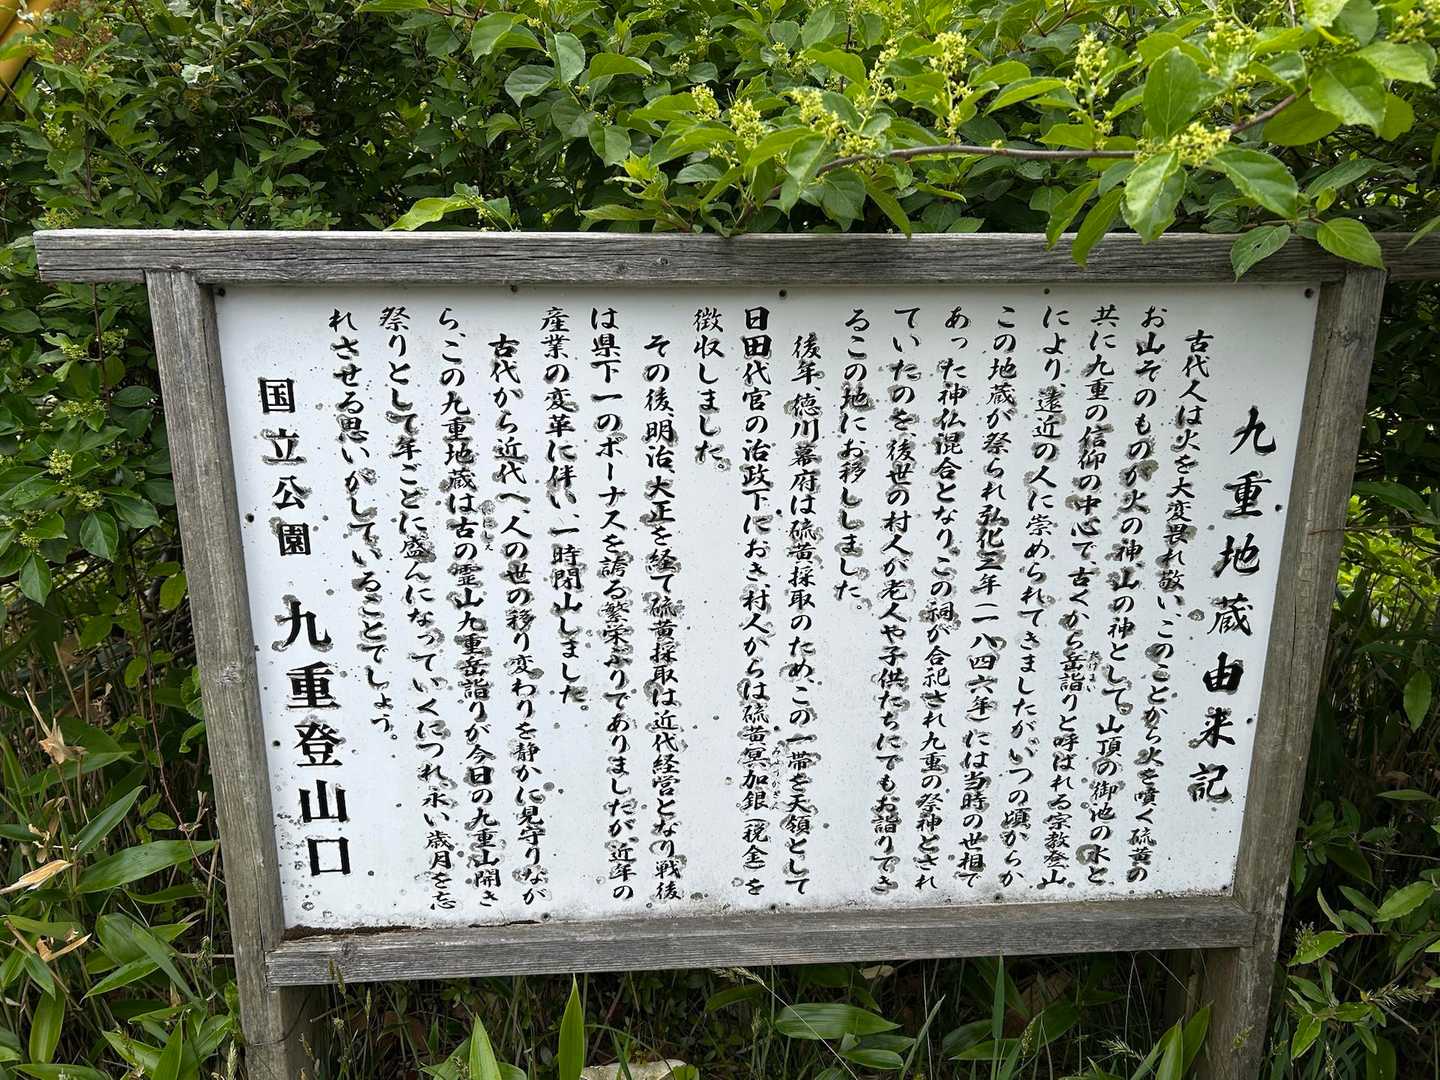 九重地蔵由来記
古代人は火を大変畏れ敬い、このことから火を噴く硫黄の
お山そのものが火の神、山の神として、山頂の御池の水と
共に九重の信仰の中心で、古くから岳詣りと呼ばれる宗教登山
により、遠近の人に崇められてきましたが、いつの頃からか
この地蔵が祭られ弘化三年(一八四六年)には当時の世相で
あった神仏混合となり、この祠が合祀され九重の祭神とされ
ていたのを、後世の村人が老人や子供たちにでもお詣りでき
るこの地にお移ししました。
後年、徳川幕府は硫黄採取のため、この一帯を天領として
日田代官の治政下におき、村人からは硫黄冥加銀(税金)を
徴収しました。
その後、明治、大正を経て硫黄採取は近代経営となり戦後
は県下一のボーナスを誇る繁栄ぶりでありましたが、近年の
産業の変革に伴い、一時閉山しました。
古代から近代へ、人の世の移り変わりを静かに見守りなが
ら、この九重地蔵は古の霊山九重岳詣りが今日の九重山開き
祭りとして年ごとに盛んになっていくにつれ、永い歳月を忘
れさせる思いがしていることでしょう。
国立公園 九重登山口